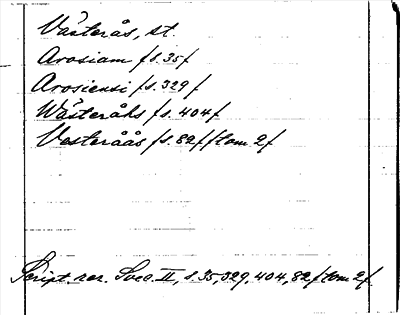 Västerås, st.
Arosiam /s. 35/
Arosiensi /s. 329/
Wästeråhs /s. 404/
Vesteråås /s. 82 / tom. 2/
Script. rer. Svec. II, s. 35, 329, 404, 82 / tom. 2/.